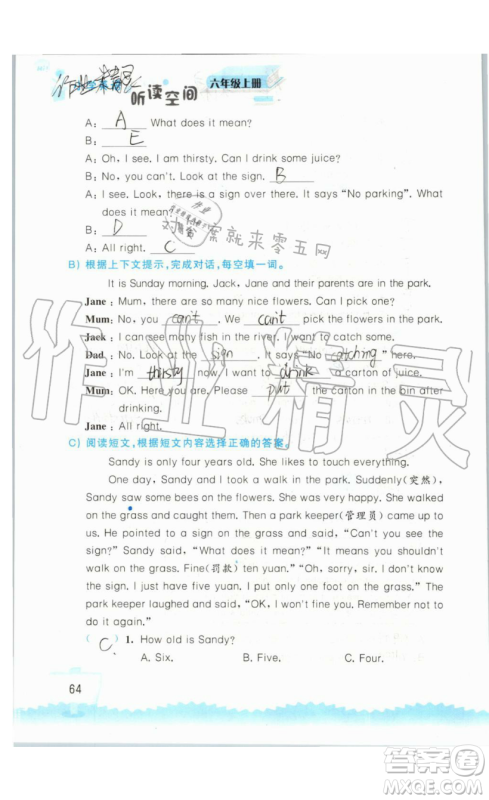 作业精灵
六年级上册
听读空间
A: A What does it mean?
B: E
A: Oh, I see. I am thirsty. Can I drink some juice?
B: No, you can't. Look at the sign. B
A: I see. Look, there is a sign over there. It says "No parking". What
does it mean?
B: D
A: All right. C
答案就来零五网
B) 根据上下文提示,完成对话,每空填一词。
It is Sunday morning. Jack, Jane and their parents are in the park.
Jane : Mum, there are so many nice flowers. Can I pick one?
Mum: No, you can't. We can't pick the flowers in the park.
Jack : I can see many fish in the river. I want to catch some.
Dad : No. Look at the sign. It says "No catching" here.
Jane : I'm thirsty now. I want to drink a carton of juice.
Mum: OK. Here you are. Please put the carton in the bin after
drinking.
Jane : All right.
作业精灵
C) 阅读短文,根据短文内容选择正确的答案。
Sandy is only four years old. She likes to touch everything.
One day, Sandy and I took a walk in the park. Suddenly(突然),
Sandy saw some bees on the flowers. She was very happy. She walked
on the grass and caught them. Then a park keeper(管理员) came up to
us. He pointed to a sign on the grass and said, "Can't you see the
sign?" Sandy said, "What does it mean?" "It means you shouldn't
walk on the grass. Fine(罚款) ten yuan." "Oh, sorry, sir. I don't know
the sign. I just have five yuan. I only put one foot on the grass." The
park keeper laughed and said, "OK, I won't fine you. But you can't
do it again."
( C ) 1. How old is Sandy?
A. Six. B. Five. C. Four.
64
答案圈
MXQE.COM